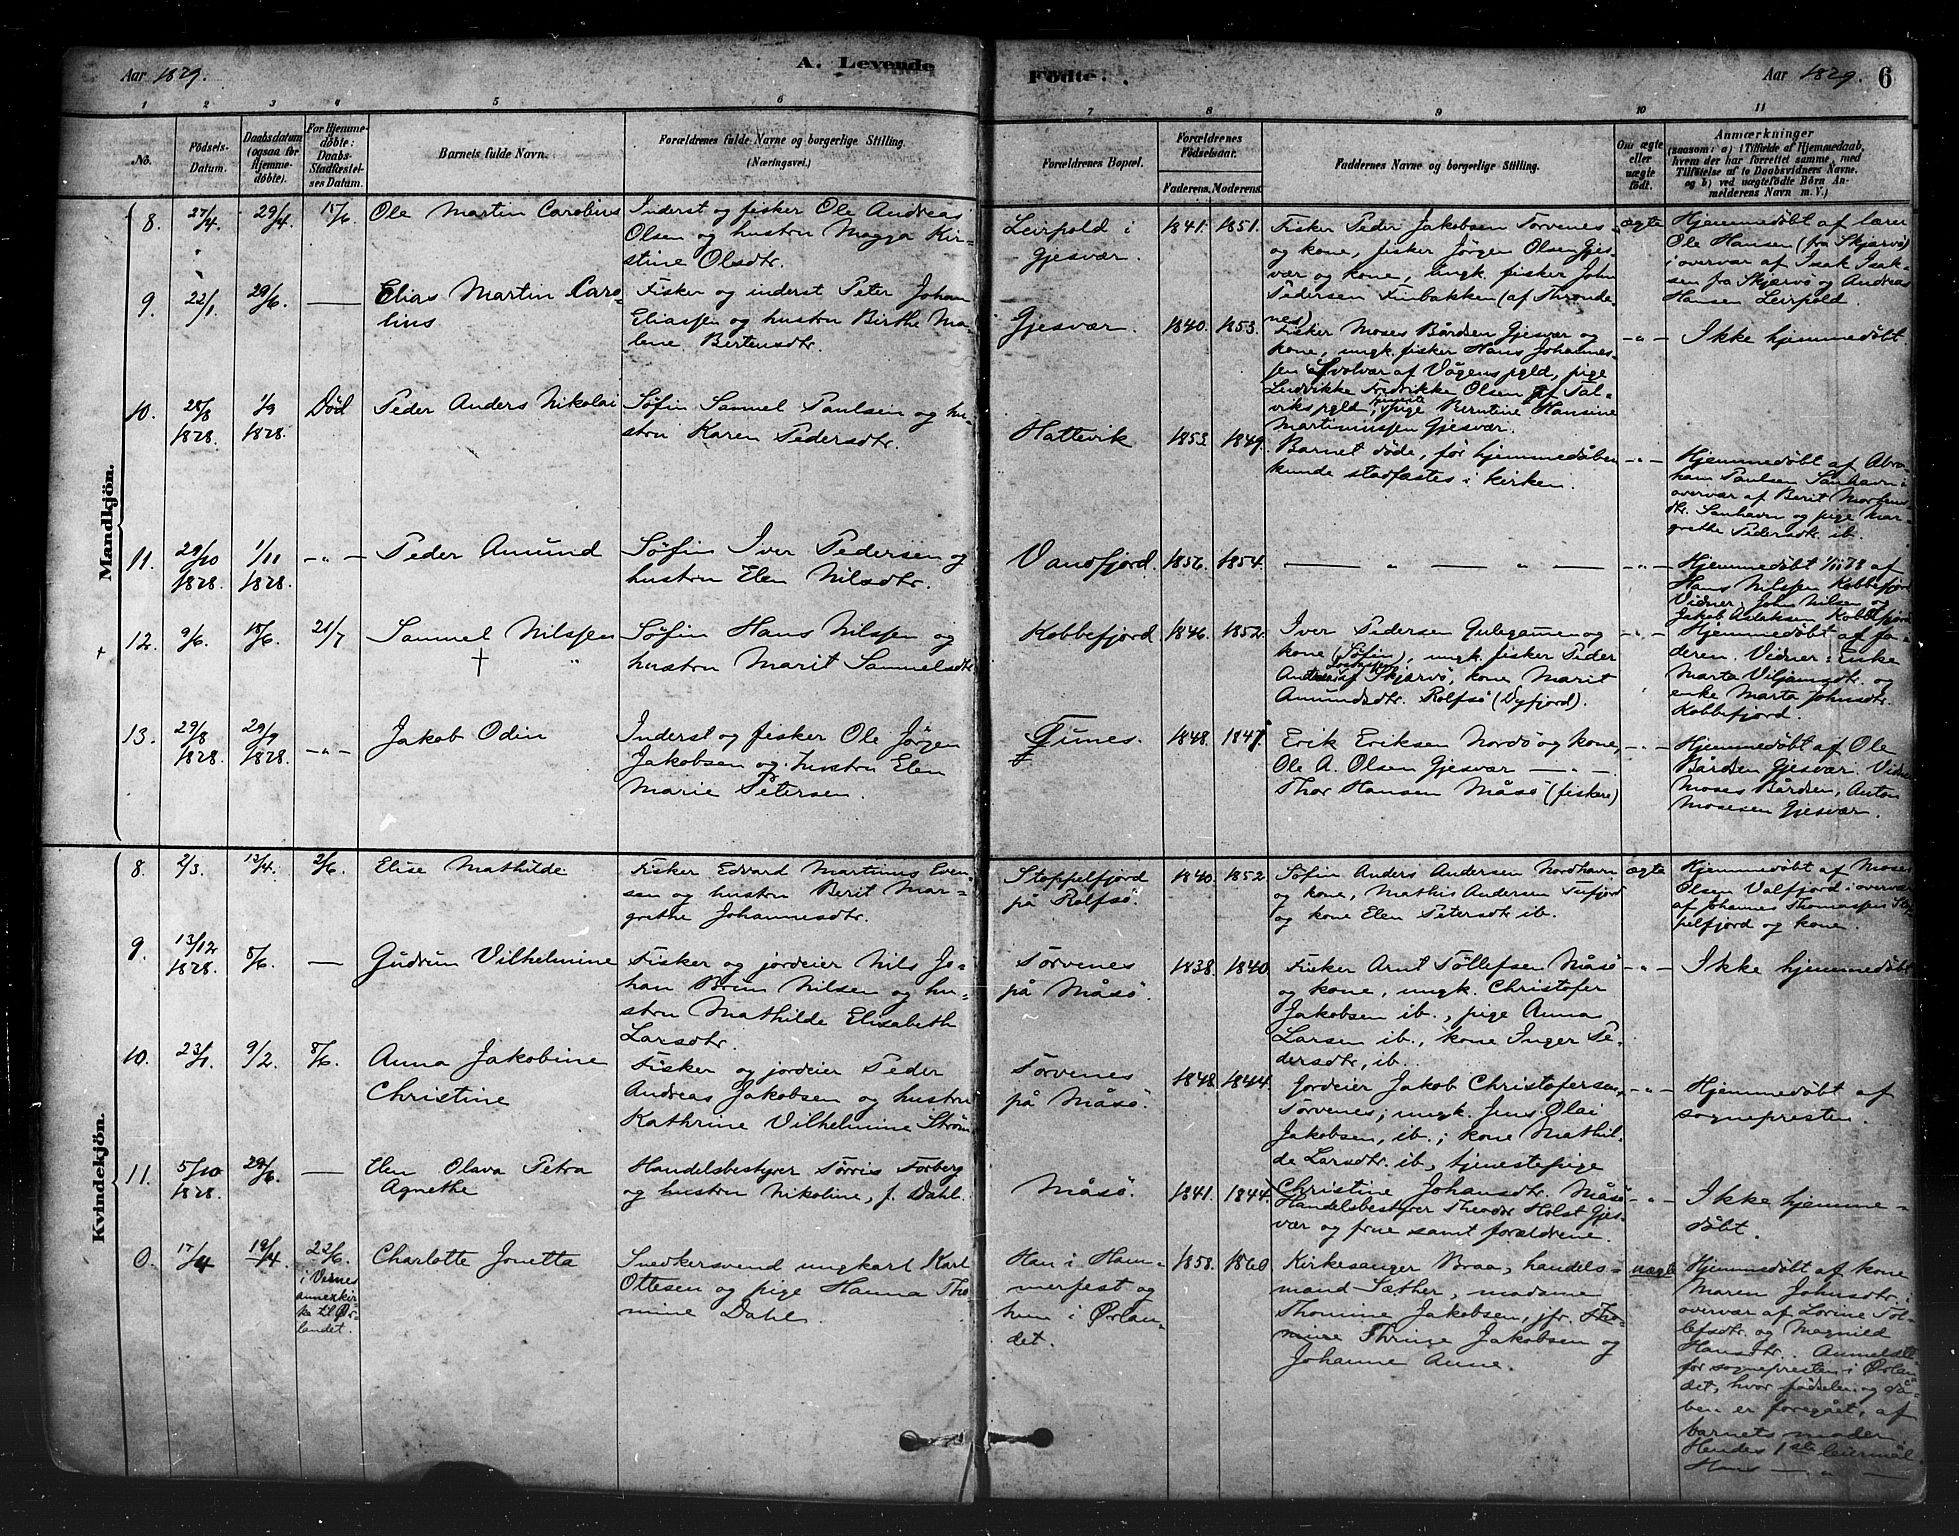 Aar 1879.
A. Levende
Fødte.
Aar 1879.
6
1 2 3 4 5 6 7 8 9 10 11
No.
Fødsels-Datum.
Daabsdatum (ogsaa for Hjemmedøbte).
For Hjemmedøbte: Daabs-Stadfæstelses Datum.
Barnets fulde Navn.
Forældrenes fulde Navne og borgerlige Stilling. (Næringsvei.)
Forældrenes Bopæl.
Forældrenes Fødselsaar.
Faderens. Moderens.
Faddernes Navne og borgerlige Stilling.
Om ægte eller uægte født.
Anmærkninger
(saasom: a) i Tilfælde af Hjemmedaab,
hvem der har forrettet samme, med
Tilføielse af to Daabsvidners Navne.
og b) ved uægtefødte Børn An-
melderens Navn m. V.)
Mandkjön.
8. 27/4 29/4 15/6
Ole Martin Carolius
Inderst og fisker Ole Andreas
Olsen og hustru Magga Kir-
stine Olsdtr.
Leirpold i
Gjesvær.
1841. 1851.
Fisker Peder Jakobsen Torvenes
og kone, fisker Jörgen Olsen Gjes-
vær og kone, ungk. fisker John
Pedersen Finbakken (af Thronde-
nes)
ægte
Hjemmedöbt af lærer
Ole Hansen (fra Skjærvö)
i overvær af Isak Isak-
sen fra Skjærvö og Andreas
Hansen Leirpold.
9. 22/1 29/6 —
Elias Martin Caro-
lius
Fisker og inderst Peter Johan
Eliassen og hustru Birthe Ma-
lene Bertensdtr.
Gjesvær.
1840. 1853.
Fisker Moses Bårdsen Gjesvær og
kone, ungk. fisker Hans Johannes-
sen Svolvær af Vågens pgld, pige
Ludvikke Fredrikke Olsen af Tal-
viks pgld, pige Berntine Hansine
Martinussen Gjesvær.
-"-
Ikke hjemmedöbt.
10. 28/8 1878. 1/9 1878. Död
Peder Anders Nikolai
Söfin Samuel Paulsen og hu-
stru Karen Pedersdtr.
Hattevik
1853. 1849.
Barnet döde, för hjemmedåben
kunde stadfæstes i kirken.
-"-
Hjemmedöbt af Abra-
ham Paulsen Sanhavn i
overvær af Berit Mortens-
dtr. Sanhavn og pige Mar-
grethe Pedersdtr. ib.
11. 29/10 1878. 1/11 1878. -"-
Peder Amund
Söfin Iver Pedersen og
hustru Elen Nilsdtr.
Vandfjord
1856. 1854.
— " — " —
-"-
Hjemmedöbt 1/11 78 af
Hans Nilssen Kobbefjord
Vidner John Nilsen og
Jakob Aslaksen Kobbefjord
12. 9/6. 15/6. 21/7
Samuel Nilssen
† "
Söfin Hans Nilssen og
hustru Marit Samuelsdtr
Kobbefjord
1846. 1852.
Iver Pedersen Gulegamen og
kone (Söfin), ungk. fisker Peder
Andreas af Skjærvö, kone Marit
Amundsdtr. Rolfsö (Dyfjord).
-"-
Hjemmedöbt af fa-
deren. Vidner: Enke
Marta Viljamsdtr. og
enke Marta Johnsdtr.
Kobbefjord.
13. 29/8 1878. 29/9 1878. -"-
Jakob Odin
Inderst og fisker Ole Jörgen
Jakobsen og hustru Elen
Marie Petersen.
Tunes.
1848. 1847.
Erik Eriksen Nordö og kone,
Ole A. Olsen Gjesvær — " —
Thor Hansen Måsö (fiskere)
-"-
Hjemmedöbt af Ole
Bårdsen Gjesvær. Vidner
Moses Bårdsen, Anton
Mosesen Gjesvær.
Kvindekjön.
8. 2/3. 12/4. 2/6.
Elise Mathilde
Fisker Edvard Martinus Even-
sen og hustru Berit Mar-
grethe Johannesdtr.
Stoppelfjord
på Rolfsö.
1840. 1852
Söfin Anders Andersen Nordhavn
og kone, Mathis Andersen Tufjord
og kone Elen Petersdtr ib.
ægte
Hjemmedöbt af Moses
Olsen Valfjord i overvær
af Johannes Thomassen Stop-
pelfjord og kone.
9. 13/12 1878. 8/6. —
Gudrun Vilhelmine
Fisker og jordeier Nils Jo-
han Brun Nilsen og hu-
stru Mathilde Elisabeth
Larsdtr.
Torvenes
på Måsö.
1838. 1840.
Fisker Arnt Töllefsen Måsö
og kone, ungk. Christofer
Jakobsen ib., pige Anna
Larsen ib., kone Inger Pe-
dersdtr, ib.
-"-
Ikke hjemmedöbt
10. 23/1. 9/2. 8/6.
Anna Jakobine
Christine
Fisker og jordeier Peder
Andreas Jakobsen og hustru
Kathrine Vilhelmine Ström
Torvenes
på Måsö.
1848. 1844.
Jordeier Jakob Christofersen,
Torvenes; ungk. Jens Olai
Jakobsen, ib.; kone Mathil-
de Larsdtr. ib., tjenestepige
Christine Johansdtr. Måsö
-"-
Hjemmedöbt af
sognepresten.
11. 5/10 1878. 29/6. —
Elen Olava Petra
Agnethe
Handelsbestyrer Törris Forberg
og hustru Nikoline, f. Dahl.
Måsö.
1841. 1844.
Handelsbestyrer Theodor Holst Gjes-
vær og frue samt forældrene.
-"-
Ikke hjemme-
döbt.
0. 17/4 19/4 22/6.
i Vernes
annexkir-
ke til Ør-
landet.
Charlotte Jonetta
Snedkersvend ungkarl Karl
Ottesen og pige Hanna Tho-
mine Dahl.
Han i Ham-
merfest og
hun i Ørlan-
det.
1858. 1860
Kirkesanger Braa, handels-
mand Sæther, madame
Thomine Jakobsen, jfr. Tho-
mine Thringe Jakobsen og
Johanne Anne.
uægte
Hjemmedöbt af kone
Maren Johnsdtr. i
overvær af Lorine Tol-
lefsdtr. og Magnild
Hansdtr. Anmeldt
for sognepresten i Ørlan-
det, hvor födselen og då-
ben er foregået, af
barnets moder.
Hendes 1ste leiermål
Hans — " —